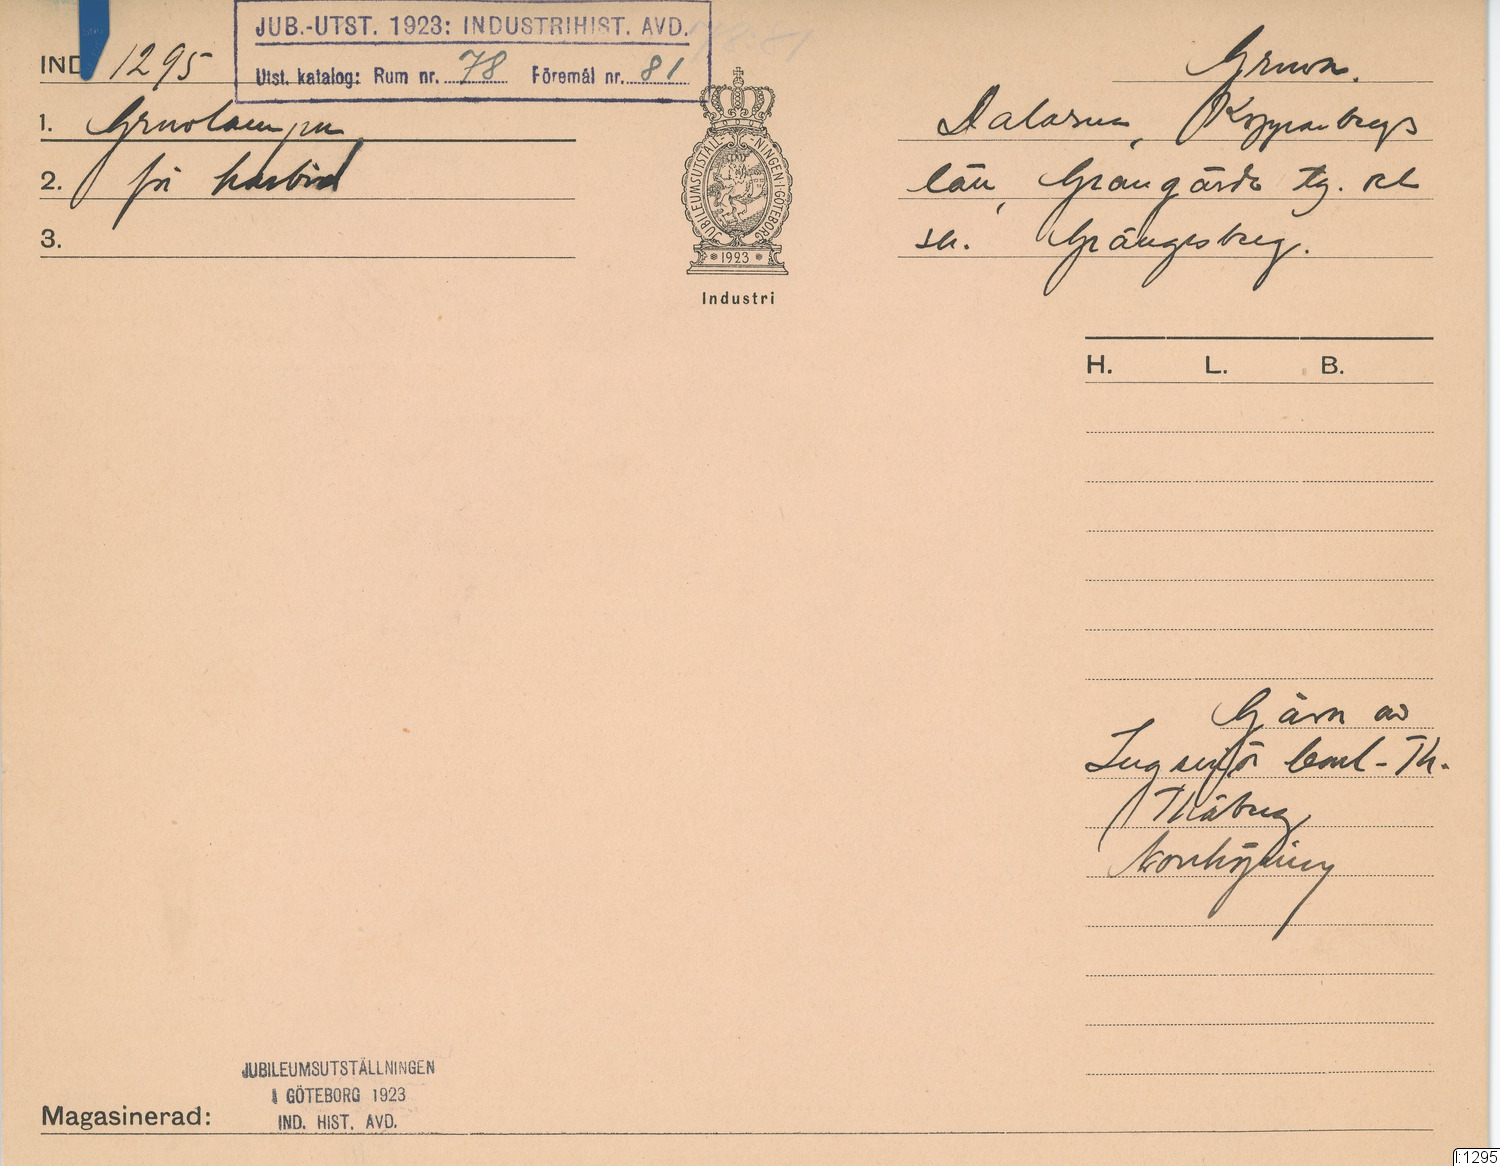 JUB.-UTST. 1923: INDUSTRIHIST. AVD.
Utst. katalog: Rum nr. 78 Föremål nr. 81
78:81
IND 1295
1. Gruvlampa
2. för karbid
3.
JUBILEUMSUTSTÄLLNINGEN I GÖTEBORG
1923
Industri
Gruva.
Dalarna, Kopparbergs
län, Grangärde tg. och
sn. Grängesberg.
H. L. B.
Gåva av
Ingenjör Carl-Th.
Thåberg,
Norrköping
JUBILEUMSUTSTÄLLNINGEN
I GÖTEBORG 1923
IND. HIST. AVD.
Magasinerad:
I:1295